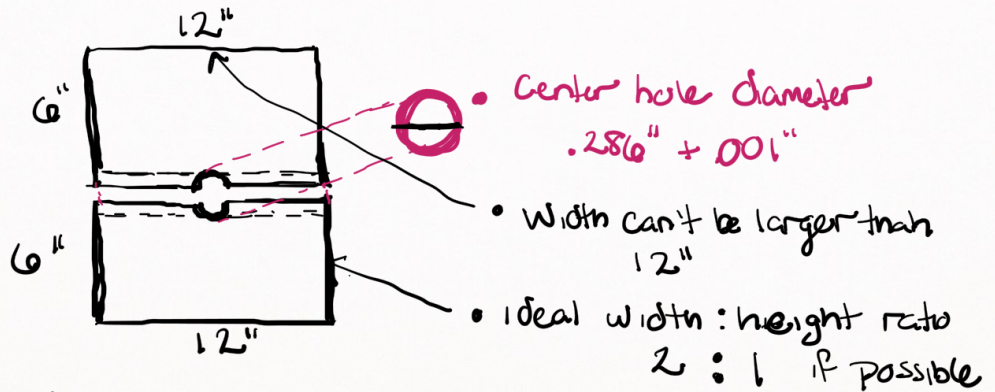 12"
6"
• Center hole diameter
.286" + .001"
• Width can't be larger than
12"
6"
• ideal width : height ratio
2 : 1 if possible
12"